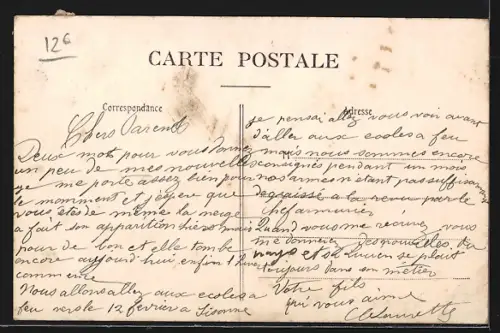 126
CARTE POSTALE
Correspondance
Adresse
Chers Parents
Deux mots pour vous donner
un peu de mes nouvelles
je me porte assez bien pour
le momment et j'espere que
vous êtes de même la neige
a fait son apparition hiers mais
pour de bon et elle tombe
encore aujourd'hui enfin l'hiver
commence
Nous allons allez aux ecoles a
feu vers le 12 fevrier a Sisonne
je pensai allez vous voir avant
d'aller aux ecoles a feu
mais nous sommes encore
consignés pendant un mois
nos armes n'etant pas suffisamment
degraissé a la revue par le
chef armurier
Quand vous me ecrirez vous
me donnerez des nouvelles du
pays et si Lucien se plait
toujours dans son métier
Votre fils
qui vous aime